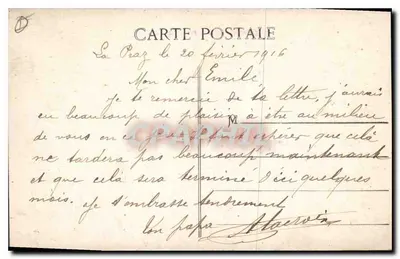 CARTE POSTALE
La Praz le 20 février 1916
Mon cher Emile
Je te remercie de ta lettre, j'aurais
eu beaucoup de plaisir à être au milieu
M
de vous en que celà
ne tardera pas beaucoup maintenant
et que celà sera terminé d'ici quelques
mois. Je t'embrasse tendrement
Ton papa